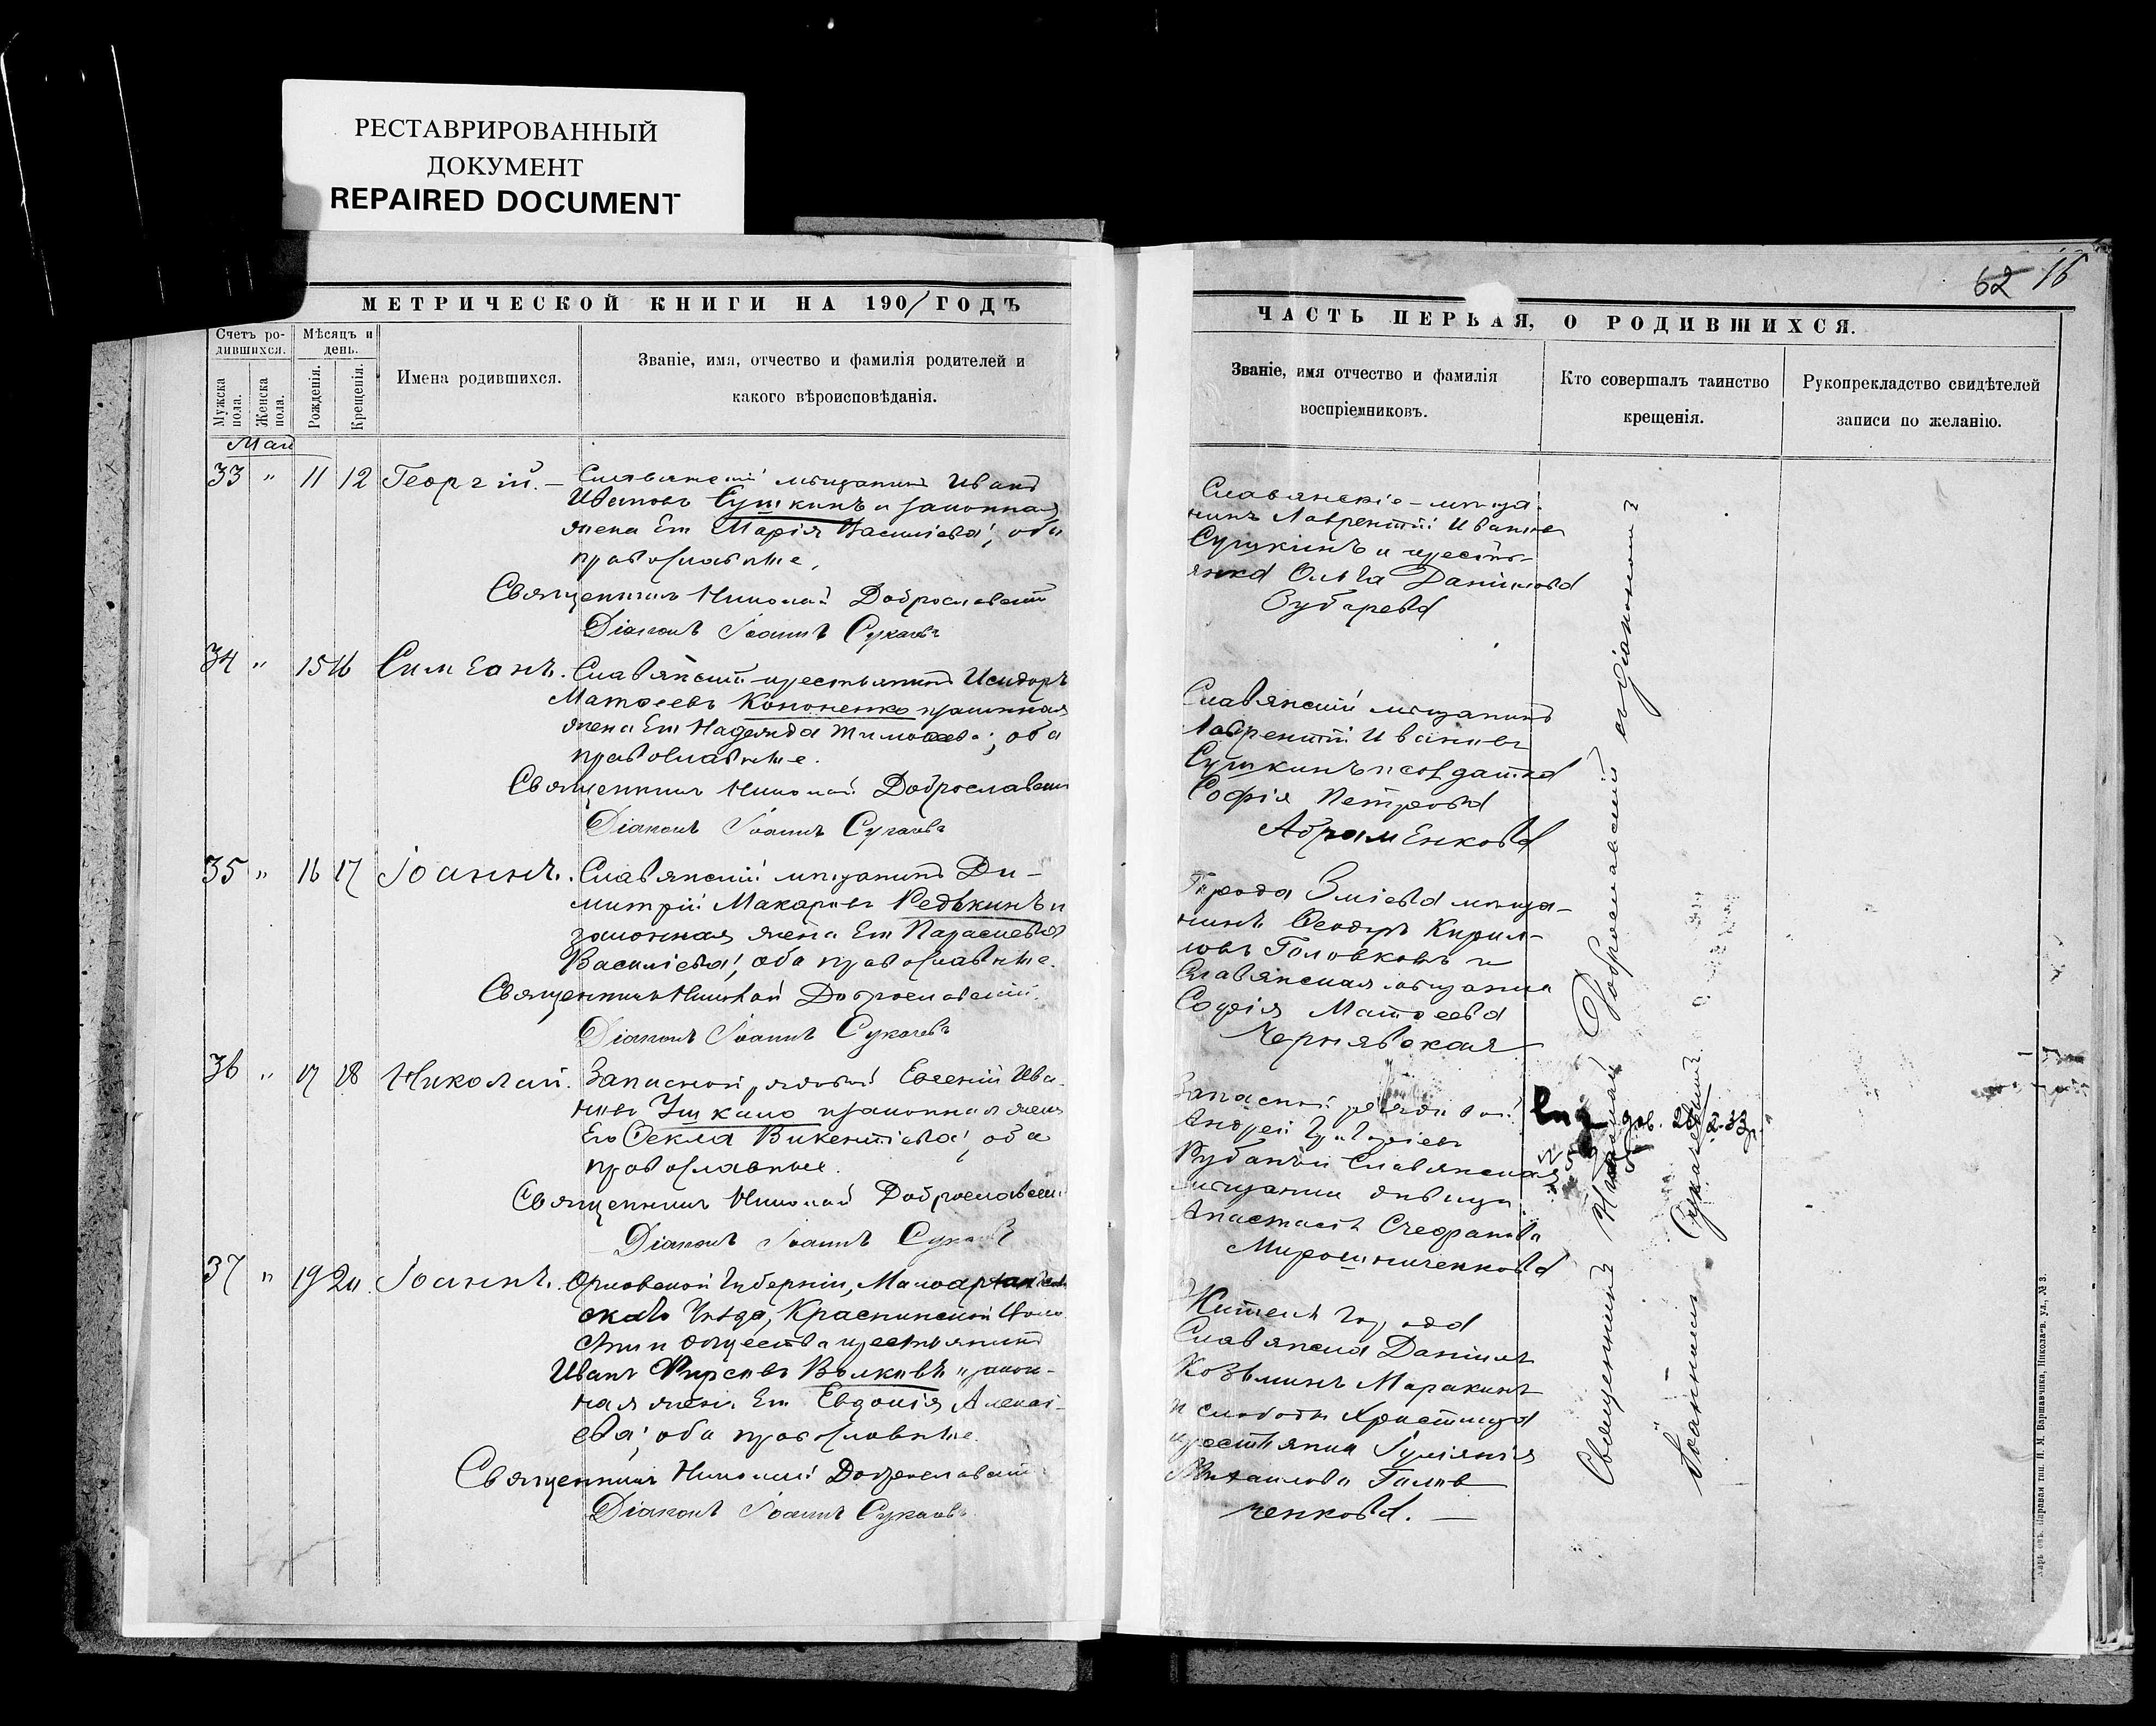 РЕСТАВРИРОВАННЫЙ
ДОКУМЕНТ
REPAIRED DOCUMENT
МЕТРИЧЕСКОЙ КНИГИ НА 1901 ГОДЪ
Счетъ ро-
дившихся.
Мѣсяцъ и
день.
Мужска
пола.
Женска
пола.
Рожденія.
Крещенія.
Имена родившихся.
Званіе, имя, отчество и фамилія родителей и
какого вѣроисповѣданія.
Май
33 " 11 12 Георгій. – Славянскій мѣщанинъ Иванъ
Ивановъ Сушкинъ и законная
жена его Марія Васильева; оба
православные.
Священникъ Николай Доброславскій
Діаконъ Іоаннъ Сукачевъ
34 " 15 16 Симеонъ. Славянскій крестьянинъ Исидоръ
Матѳеевъ Кононенко и законная
жена его Надежда Тимоѳеева; оба
православные.
Священникъ Николай Доброславскій
Діаконъ Іоаннъ Сукачевъ
35 " 16 17 Іоаннъ. Славянскій мѣщанинъ Ди-
митрій Макаровъ Редькинъ и
законная жена его Параскева
Васильева; оба православные.
Священникъ Николай Доброславскій
Діаконъ Іоаннъ Сукачевъ
36 " 17 18 Николай. Запасной рядовой Евсеній Ива-
новъ Ушкало и законная жена
его Ѳекла Викентіева; оба
православные.
Священникъ Николай Доброславскій
Діаконъ Іоаннъ Сукачевъ
37 " 19 20. Іоаннъ. Орловской губерніи, Малоархангель
скаго уѣзда, Краснинской воло
сти и общества крестьянинъ
Иванъ Фирсовъ Волковъ и закон-
ная жена его Евдокія Алексі-
ева; оба православные.
Священникъ Николай Доброславскій
Діаконъ Іоаннъ Сукачевъ
62 16
ЧАСТЬ ПЕРВАЯ, О РОДИВШИХСЯ.
Званіе, имя отчество и фамилія
воспріемниковъ.
Кто совершалъ таинство
крещенія.
Рукоприкладство свидѣтелей
записи по желанію.
Славянскіе – мѣща-
нинъ Лаврентій Ивановъ
Сушкинъ и кресть-
янка Ольга Даніилова
Зубарева
Славянскій мѣщанинъ
Лаврентій Ивановъ
Сушкинъ и солдатка
Софія Петрова
Абраменкова
Города Зміева мѣща-
нинъ Ѳеодоръ Кирил-
ловъ Головковъ и
Славянская мѣщанка
Софія Матѳеева
Чернявская
Запасной рядовой
Андрей Григоріевъ
Рубанъ и Славянская
мѣщанка дѣвица
Анастасія Стефанова
Мирошниченкова
Житель города
Славянска Даніилъ
Козьминъ Маракинъ
и слободы Христища
крестьянка Іуліанія
Михаилова Голов
ченкова. –
Священникъ Николай Доброславскій съ діакономъ
Іоанномъ Сукачевымъ